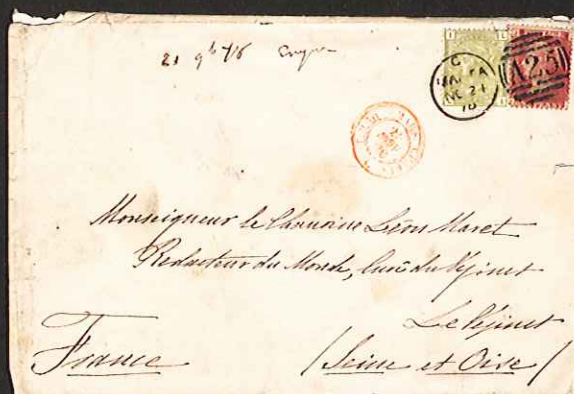 C
A25
NO 21
Monseigneur le Chanoine Léon Maret
Redacteur du Monde, Curé du Véjinet
Le Véjinet
France (Seine et Oise)